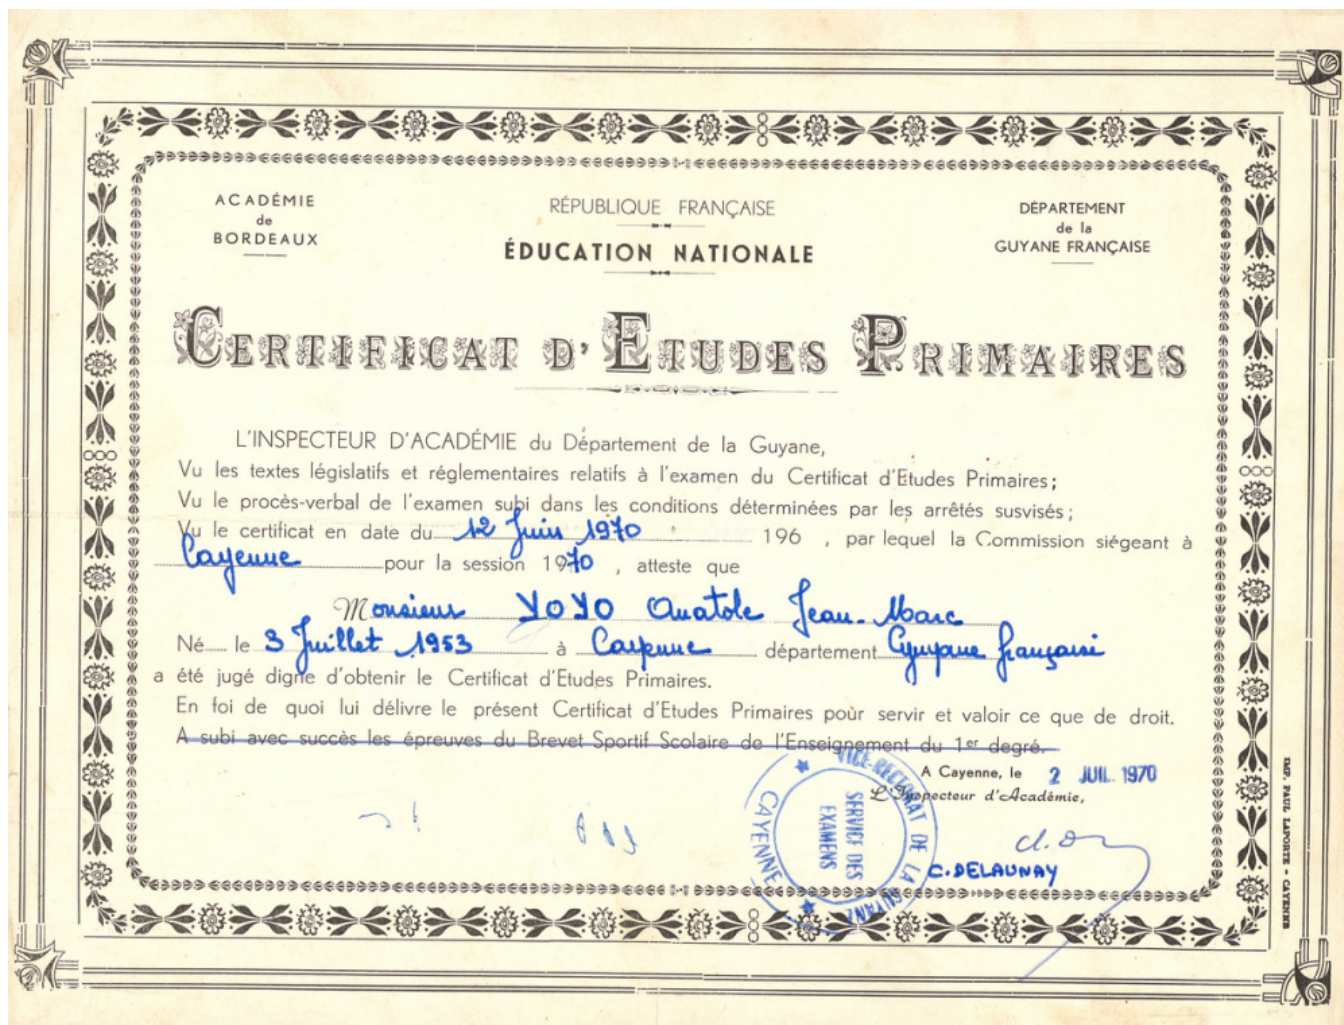 ACADÉMIE
de
BORDEAUX
RÉPUBLIQUE FRANÇAISE
ÉDUCATION NATIONALE
DÉPARTEMENT
de la
GUYANE FRANÇAISE
CERTIFICAT D'ETUDES PRIMAIRES
L'INSPECTEUR D'ACADÉMIE du Département de la Guyane,
Vu les textes législatifs et réglementaires relatifs à l'examen du Certificat d'Etudes Primaires;
Vu le procès-verbal de l'examen subi dans les conditions déterminées par les arrêtés susvisés;
Vu le certificat en date du 12 Juin 1970 196 , par lequel la Commission siégeant à
Cayenne pour la session 1970 , atteste que
Monsieur YOYO Anatole Jean-Marc
Né le 3 Juillet 1953 à Cayenne département Guyane française
a été jugé digne d'obtenir le Certificat d'Etudes Primaires.
En foi de quoi lui délivre le présent Certificat d'Etudes Primaires pour servir et valoir ce que de droit.
A subi avec succès les épreuves du Brevet Sportif Scolaire de l'Enseignement du 1er degré.
A Cayenne, le 2 JUIL. 1970
L'Inspecteur d'Académie,
C. DELAUNAY
VICE-RECTORAT DE LA GUYANE
SERVICE DES
EXAMENS
CAYENNE
IMP. PAUL LAPORTE - CAYENNE